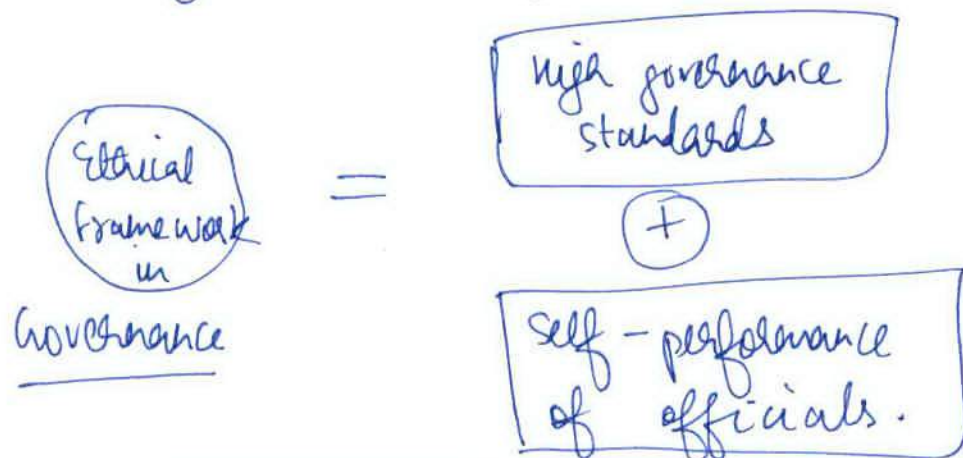 Ethical
framework
in
Governance
=
high governance
standards
+
self-performance
of officials.